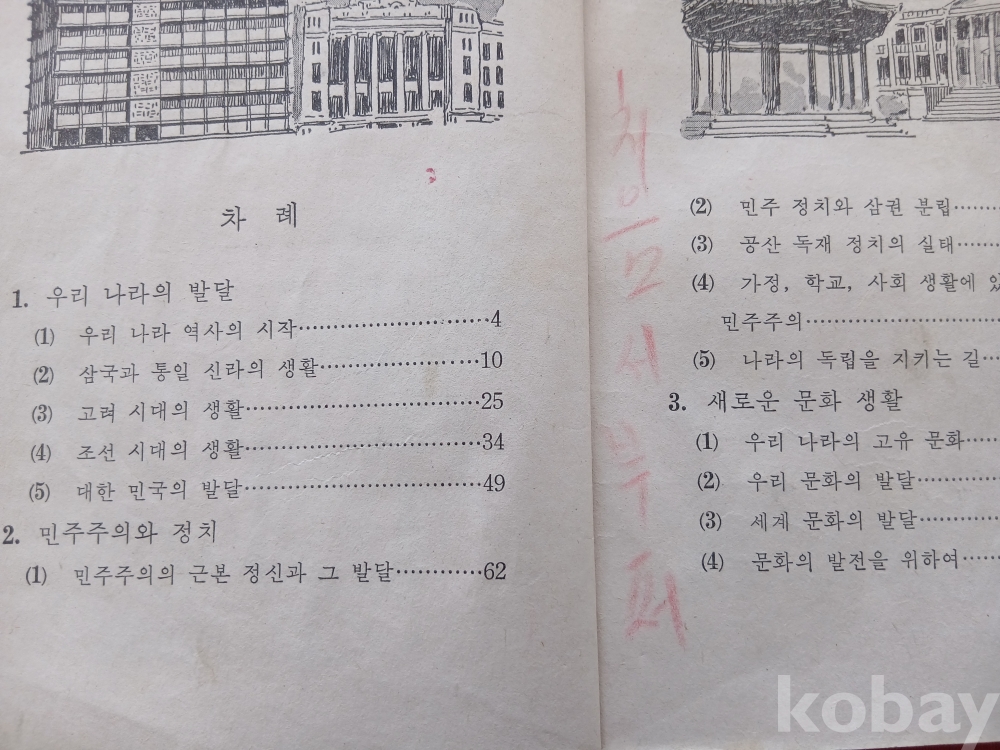 차 례
1. 우리 나라의 발달
(1) 우리 나라 역사의 시작……………………4
(2) 삼국과 통일 신라의 생활…………………10
(3) 고려 시대의 생활…………………………25
(4) 조선 시대의 생활…………………………34
(5) 대한 민국의 발달…………………………49
2. 민주주의와 정치
(1) 민주주의의 근본 정신과 그 발달…………62
(2) 민주 정치와 삼권 분립……
(3) 공산 독재 정치의 실태……
(4) 가정, 학교, 사회 생활에 있
민주주의……………………
(5) 나라의 독립을 지키는 길……
3. 새로운 문화 생활
(1) 우리 나라의 고유 문화……
(2) 우리 문화의 발달…………
(3) 세계 문화의 발달…………
(4) 문화의 발전을 위하여……
kobay